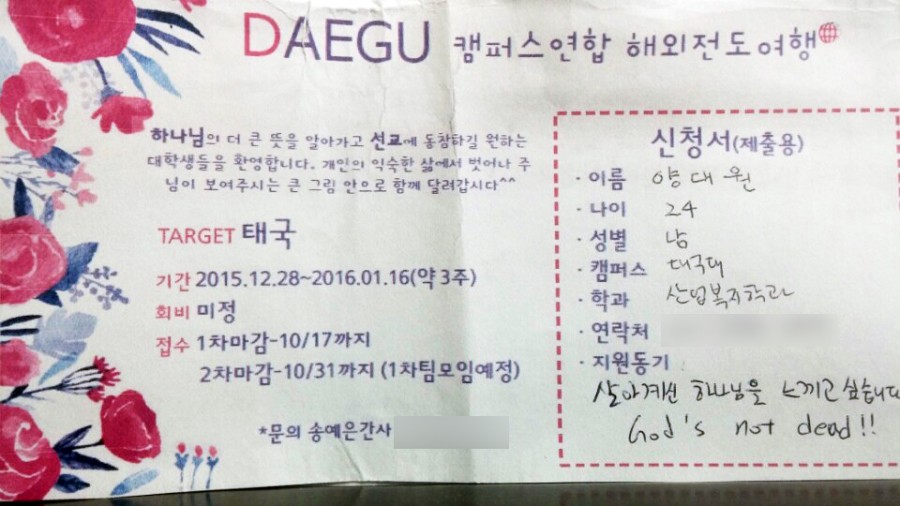 DAEGU 캠퍼스연합 해외전도여행
하나님의 더 큰 뜻을 알아가고 선교에 동참하길 원하는
대학생들을 환영합니다. 개인의 익숙한 삶에서 벗어나 주
님이 보여주시는 큰 그림 안으로 함께 달려갑시다^^
TARGET 태국
기간 2015.12.28~2016.01.16(약 3주)
회비 미정
접수 1차마감-10/17까지
2차마감-10/31까지 (1차팀모임예정)
*문의 송예은간사
신청서(제출용)
· 이름 양대원
· 나이 24
· 성별 남
· 캠퍼스 대구대
· 학과 산업복지학과
· 연락처
· 지원동기
살아계신 하나님을 느끼고 싶습니다
God's not dead!!